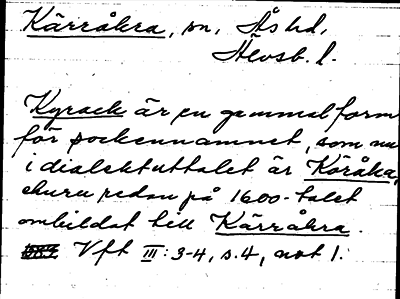 Kärråkra, sn, Ås hd,
Älvsb. l.
Kyrack är en gammal form
för sockennamnet, som nu
i dialektuttalet är Köråka,
churu redan på 1600-talet
ombildat till Kärråkra.
Vft III: 3-4, s. 4, not 1.